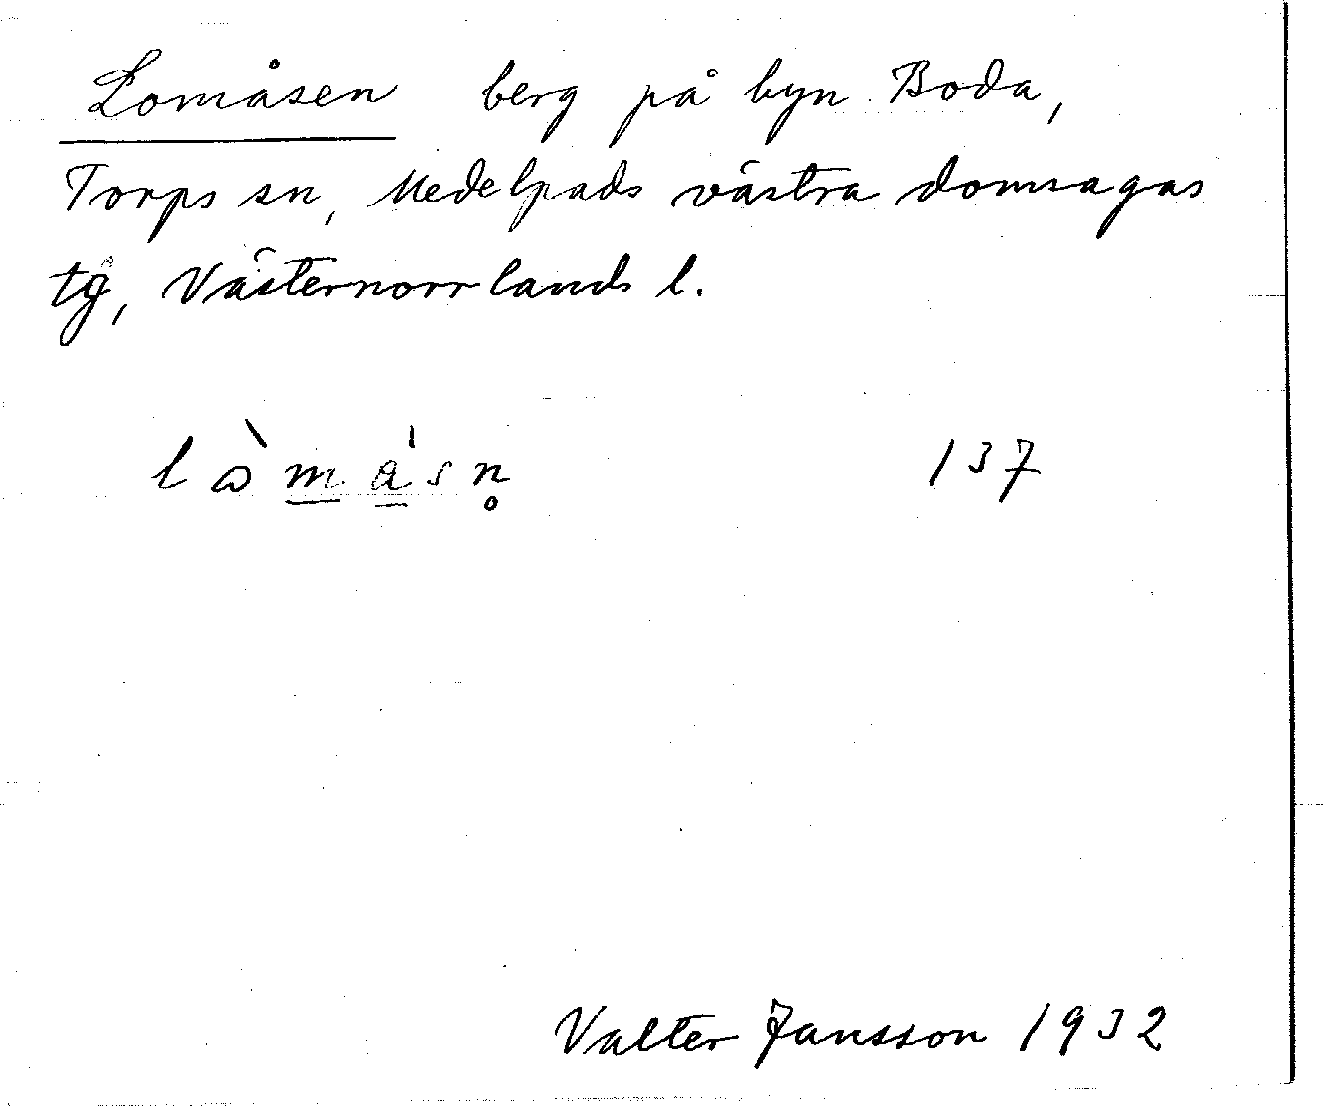 Lomåsen berg på byn Boda,
Torps sn, Medelpads västra domsagas
tg, Västernorrlands l.
lòmåsn̥ 137
Valter Jansson 1932